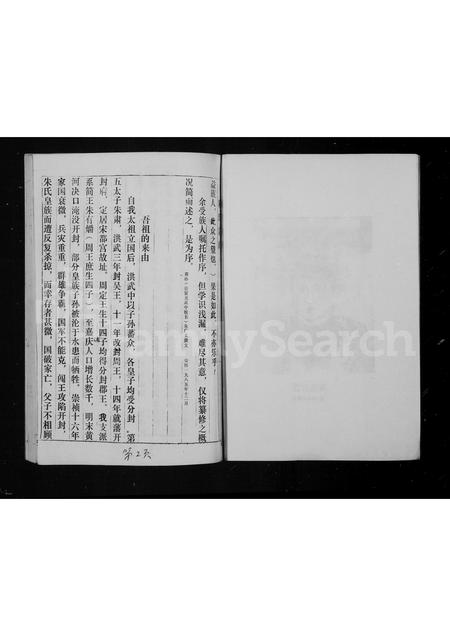 益族人，此众之望焉，果是如此，不亦乐乎！
余受族人嘱托作序，但学识浅漏，难尽其意，仅将纂修之概
况简而述之，是为序。
公历一九八五年十二月
吾祖的来由
自我太祖立国后，洪武中以子孙蕃众，各皇子均受分封。第
五太子朱肃，洪武三年封吴王，十一年改封周王，十四年就藩开
封府，定居宋都宫故址，周定王生十四子均得分封郡王。我支派
系简王朱有爝（周王庶生四子），至嘉庆人口增长数千，明末黄
河决口淹没开封，部分皇族子孙被沦于水患而牺牲。崇祯十六年
家国衰微，兵灾重重，群雄争霸，国军不能克，闯王攻陷开封，
朱氏皇族而遭反复杀掠，而幸存者甚微，国破家亡，父子不相顾
第2页
FamilySearch